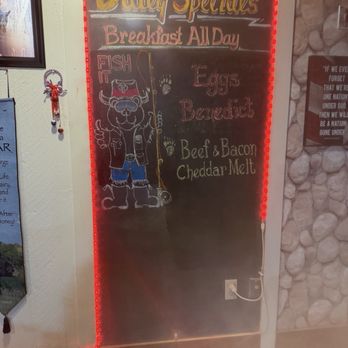 Daily Specials
Breakfast All Day
FISH
IT
Eggs
Benedict
Beef & Bacon
Cheddar Melt
"IF WE EVER
FORGET
THAT WE'RE
ONE NATION
UNDER
THEN WE WILL
BE A NATION
GONE UNDER
a
AR
Life
After